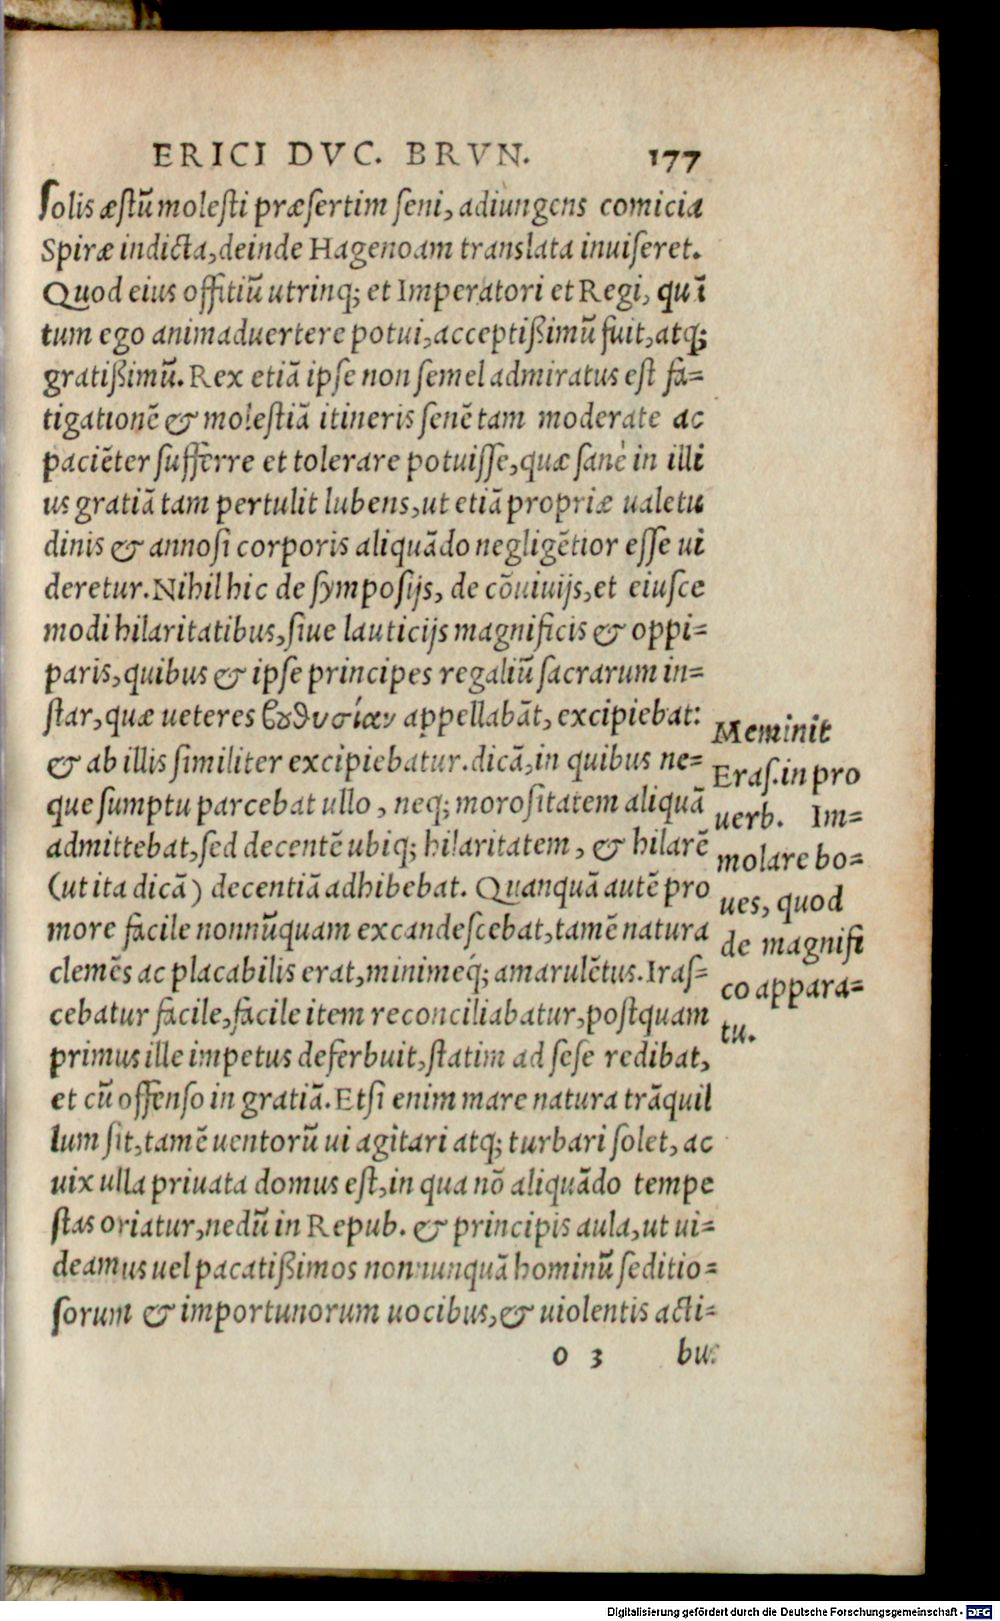 ERICI DVC. BRVN. 177
ſolis æſtū moleſti præſertim ſeni, adiungens comicia
Spiræ indicta, deinde Hagenoam translata inuiſeret.
Quod eius offitiū utrinq; et Imperatori et Regi, quā
tum ego animaduertere potui, acceptißimū fuit, atq;
gratißimū. Rex etiā ipſe non ſemel admiratus eſt fa=
tigationē & moleſtiā itineris ſenē tam moderate ac
paciēter ſufferre et tolerare potuiſſe, quæ ſanè in illi
us gratiā tam pertulit lubens, ut etiā propriæ ualetu
dinis & annoſi corporis aliquādo negligētior eſſe ui
deretur. Nihil hic de ſympoſijs, de cōuiuijs, et eiuſce
modi hilaritatibus, ſiue lauticijs magnificis & oppi=
paris, quibus & ipſe principes regaliū ſacrarum in=
ſtar, quæ ueteres βουθυσίαν appellabāt, excipiebat:
& ab illis ſimiliter excipiebatur. dicā, in quibus ne=
que ſumptu parcebat ullo, neq; moroſitatem aliquā
admittebat, ſed decentē ubiq; hilaritatem, & hilarē
(ut ita dicā) decentiā adhibebat. Quanquā autē pro
more facile nonnūquam excandeſcebat, tamē natura
clemēs ac placabilis erat, minimeq́; amarulētus. Iraſ=
cebatur facile, facile item reconciliabatur, poſtquam
primus ille impetus deferbuit, ſtatim ad ſeſe redibat,
et cū offenſo in gratiā. Etſi enim mare natura trāquil
lum ſit, tamē uentorū ui agitari atq; turbari ſolet, ac
uix ulla priuata domus eſt, in qua nō aliquādo tempe
ſtas oriatur, nedū in Repub. & principis aula, ut ui=
deamus uel pacatißimos nonnunquā hominū ſeditio=
ſorum & importunorum uocibus, & uiolentis acti=
o 3 bus
Meminit
Eraſ. in pro
uerb. Im=
molare bo=
ues, quod
de magnifi
co appara=
tu.
Digitalisierung gefördert durch die Deutsche Forschungsgemeinschaft - DFG